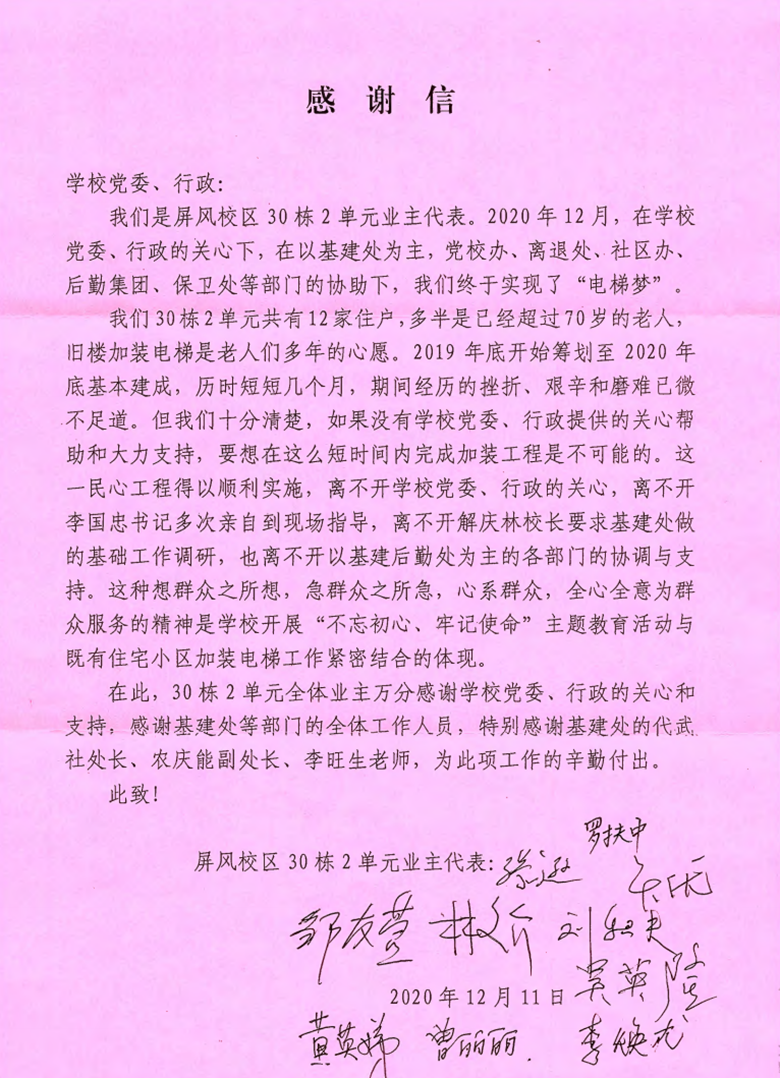 感谢信
学校党委、行政：
我们是屏风校区30栋2单元业主代表。2020年12月，在学校
党委、行政的关心下，在以基建处为主，党校办、离退处、社区办、
后勤集团、保卫处等部门的协助下，我们终于实现了“电梯梦”。
我们30栋2单元共有12家住户，多半是已经超过70岁的老人，
旧楼加装电梯是老人们多年的心愿。2019年底开始筹划至2020年
底基本建成，历时短短几个月，期间经历的挫折、艰辛和磨难已微
不足道。但我们十分清楚，如果没有学校党委、行政提供的关心帮
助和大力支持，要想在这么短时间内完成加装工程是不可能的。这
一民心工程得以顺利实施，离不开学校党委、行政的关心，离不开
李国忠书记多次亲自到现场指导，离不开解庆林校长要求基建处做
的基础工作调研，也离不开以基建后勤处为主的各部门的协调与支
持。这种想群众之所想，急群众之所急，心系群众，全心全意为群
众服务的精神是学校开展“不忘初心、牢记使命”主题教育活动与
既有住宅小区加装电梯工作紧密结合的体现。
在此，30栋2单元全体业主万分感谢学校党委、行政的关心和
支持，感谢基建处等部门的全体工作人员，特别感谢基建处的代武
社处长、农庆能副处长、李旺生老师，为此项工作的辛勤付出。
此致！
罗扶中
屏风校区30栋2单元业主代表：
邹友萱 林文介
2020年12月11日 吴英隆
黄英娣 曾丽丽 李焕龙